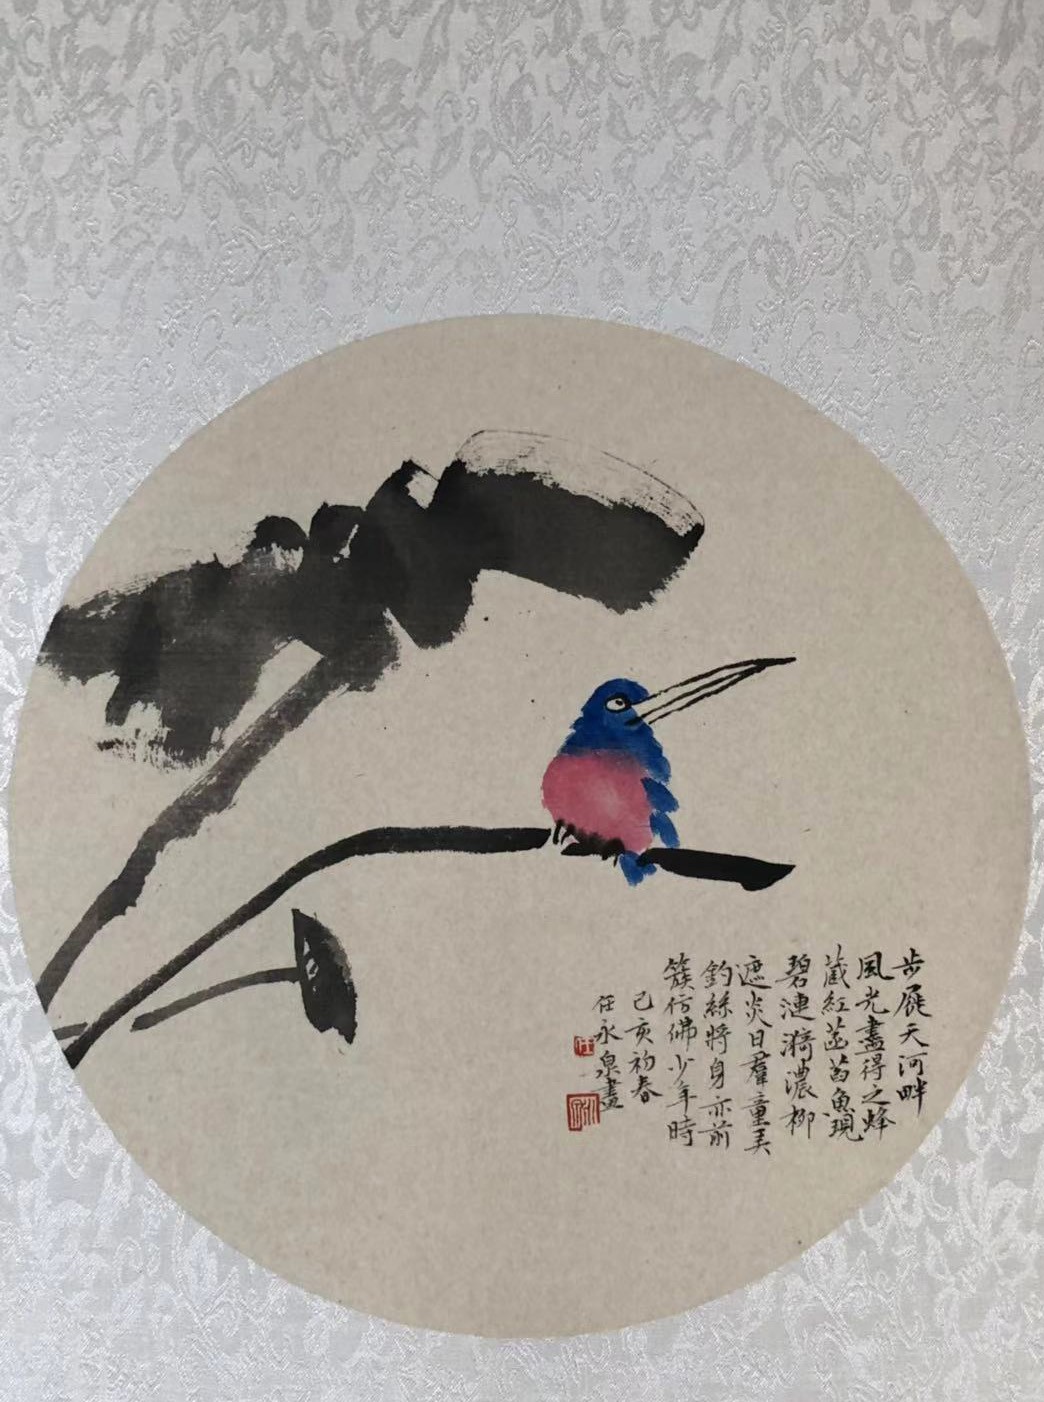 步天河畔
風光盡得之蜂
藏紅菡萏魚現
碧漣漪濃柳
遮炎日羣童
釣絲將身亦前
簇仿佛少年時
己亥初春
任永泉畫
任